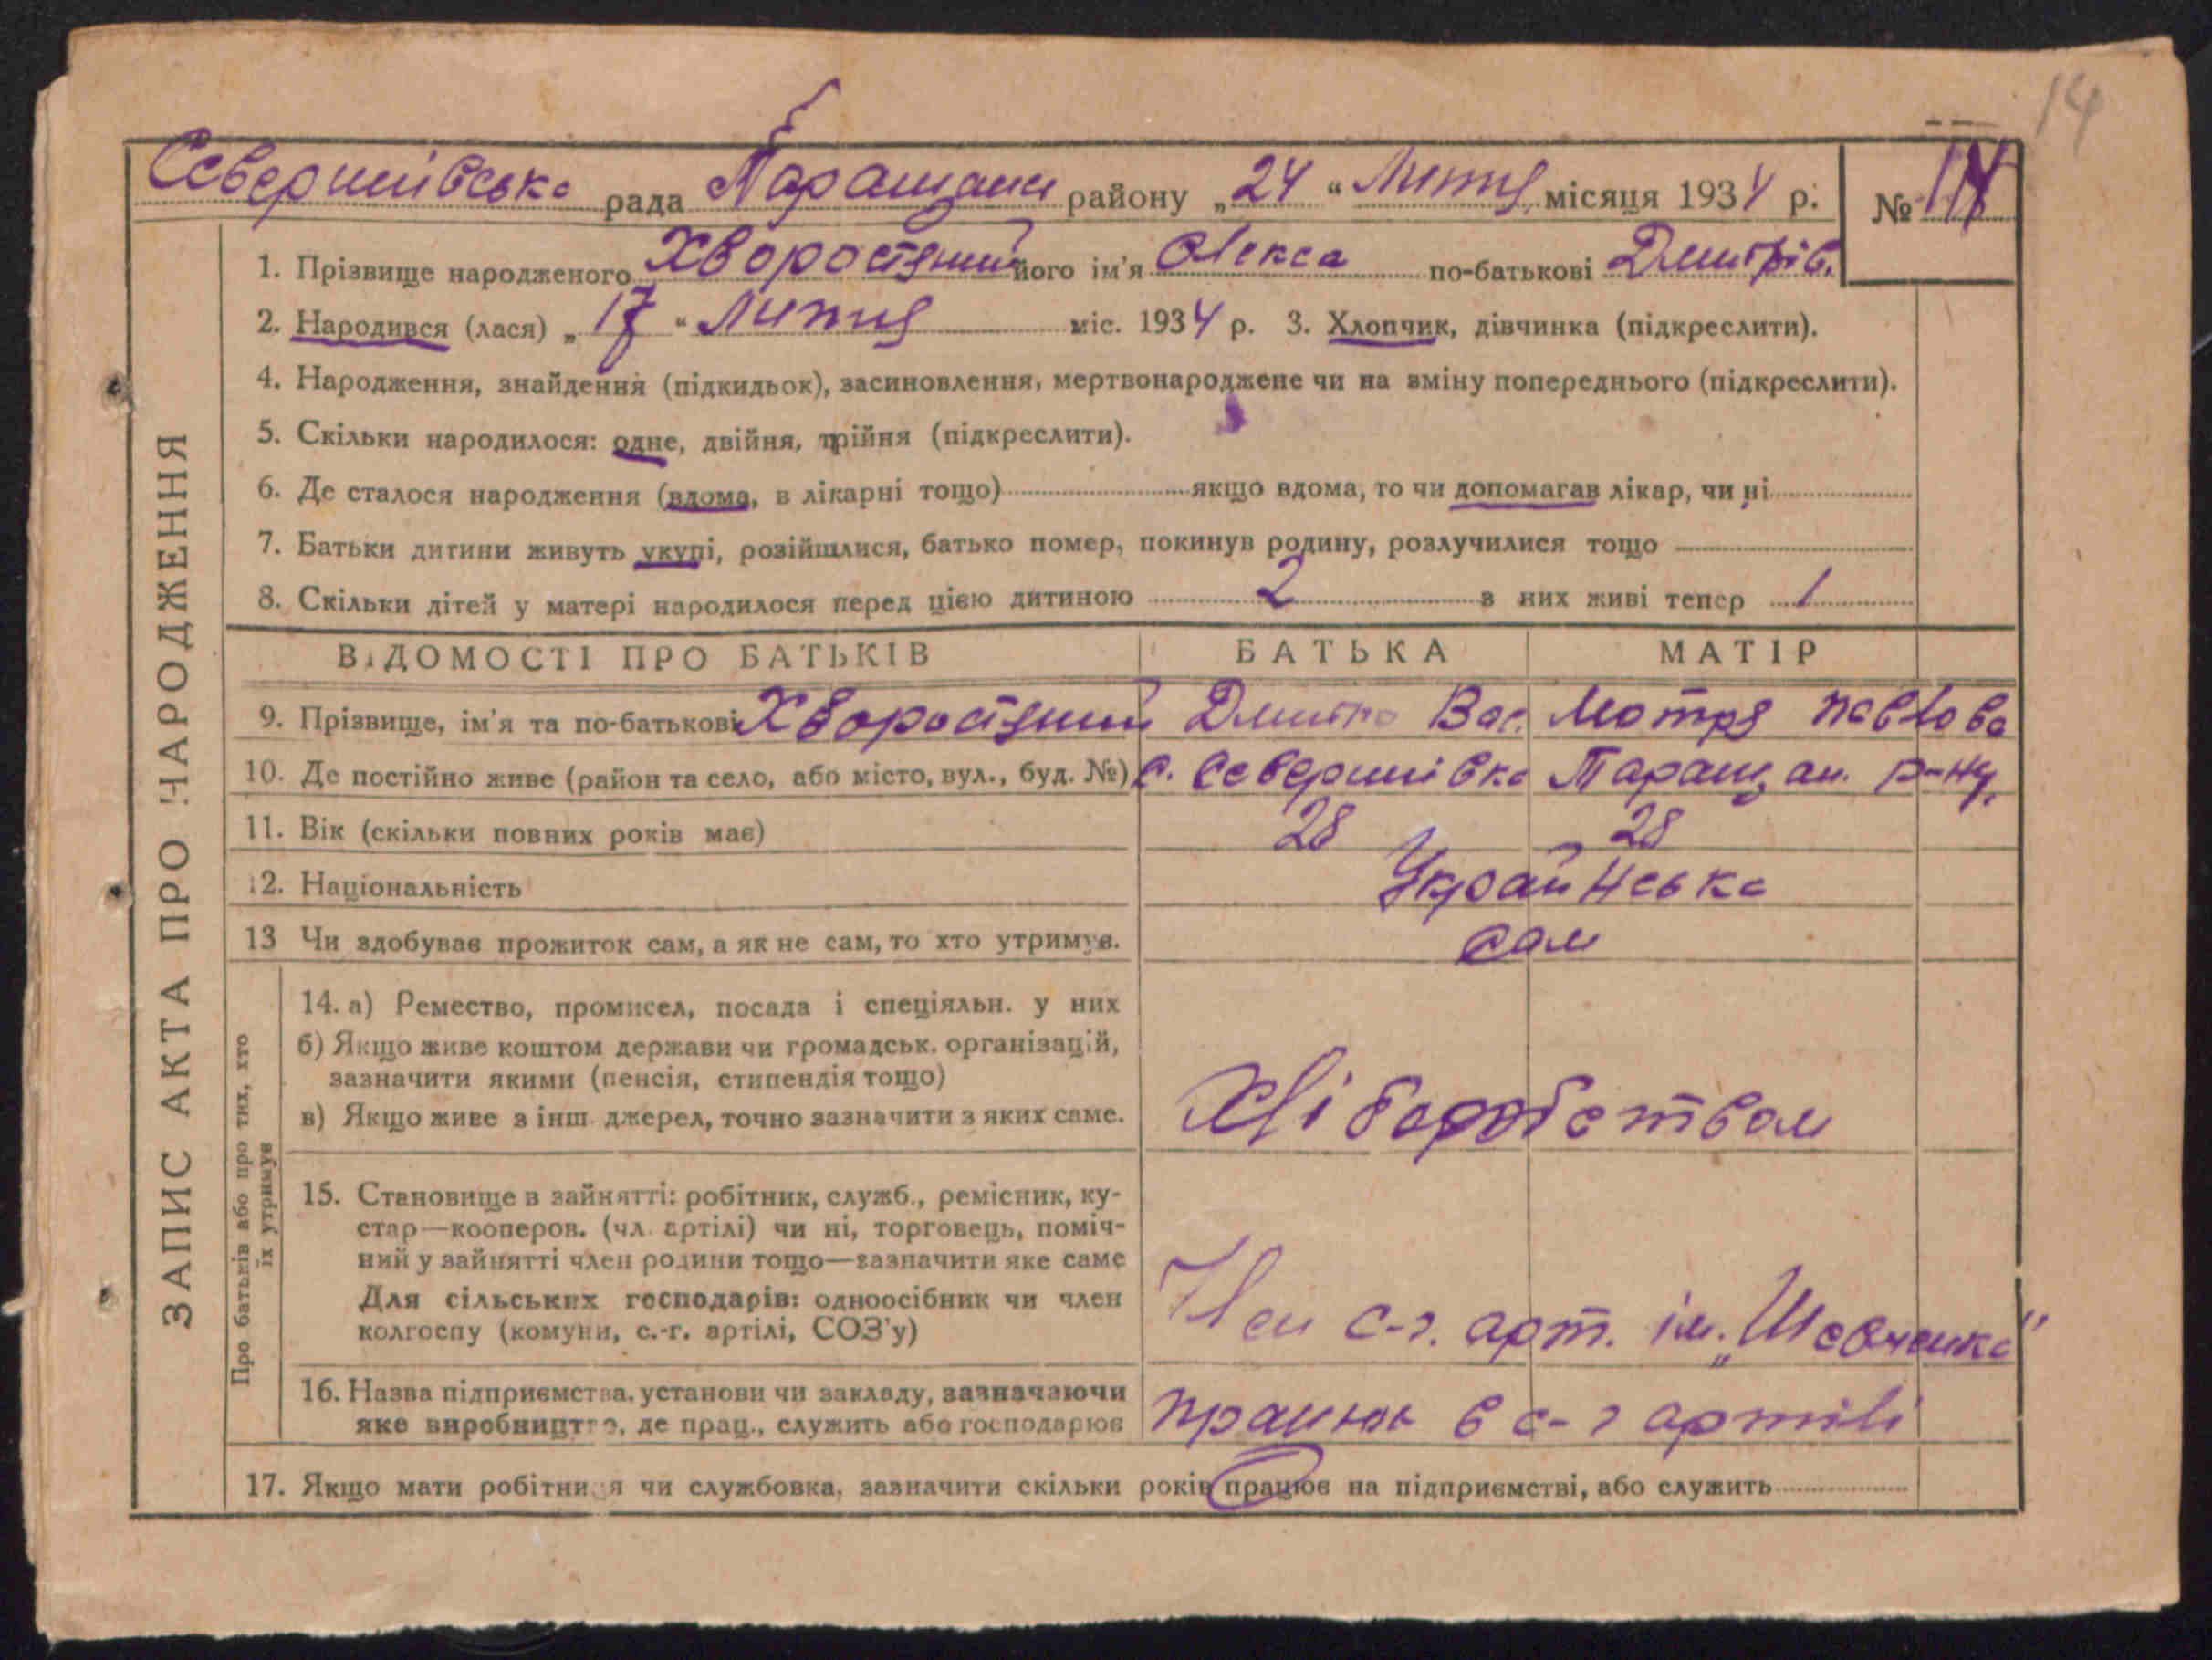 14
Северинівська рада Таращанс району „24“ Лютня місяця 1934 р. № 14
1. Прізвище народженого Хворостяний його ім'я Олекса по-батькові Дмитрів.
2. Народився (лася) „17“ Лютня міс. 1934 р. 3. Хлопчик, дівчинка (підкреслити).
4. Народження, знайдення (підкидьок), засиновлення, мертвонароджене чи на зміну попереднього (підкреслити).
5. Скільки народилося: одне, двійня, трійня (підкреслити).
6. Де сталося народження (вдома, в лікарні тощо) якщо вдома, то чи допомагав лікар, чи ні
7. Батьки дитини живуть укупі, розійшлися, батько помер, покинув родину, розлучилися тощо
8. Скільки дітей у матері народилося перед цією дитиною 2 з них живі тепер 1
ВІДОМОСТІ ПРО БАТЬКІВ БАТЬКА МАТІР
9. Прізвище, ім'я та по-батькові Хворостяний Дмитро Вас. Мотря Павлова
10. Де постійно живе (район та село, або місто, вул., буд. №) с. Северинівка Таращан. р-ну.
11. Вік (скільки повних років має) 28 28
12. Національність Українська
13 Чи здобуває прожиток сам, а як не сам, то хто утримує. Сам
14. а) Ремество, промисел, посада і спеціяльн. у них
б) Якщо живе коштом держави чи громадськ. організацій,
зазначити якими (пенсія, стипендія тощо)
в) Якщо живе з інш. джерел, точно зазначити з яких саме. Хліборобством
15. Становище в зайнятті: робітник, служб., ремісник, ку-
стар—кооперов. (чл. артілі) чи ні, торговець, поміч-
ний у зайнятті член родини тощо—зазначити яке саме
Для сільських господарів: одноосібник чи член
колгоспу (комуни, с.-г. артілі, СОЗ'у) Член с-г. арт. ім. „Шевченка“
16. Назва підприємства, установи чи закладу, зазначаючи
яке виробництво, де прац., служить або господарює працює в с-г артілі
17. Якщо мати робітниця чи службовка, зазначити скільки років працює на підприємстві, або служить
ЗАПИС АКТА ПРО НАРОДЖЕННЯ
Про батьків або про тих, хто
їх утримує